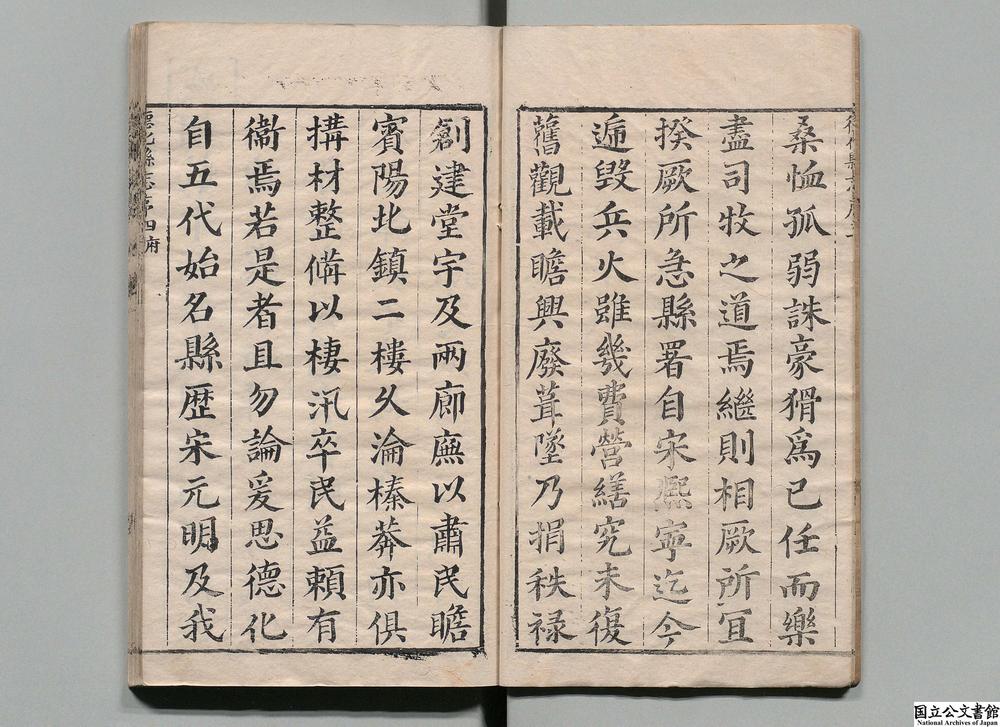 桑恤孤弱誅豪猾爲已任而樂
盡司牧之道焉繼則相厥所宜
揆厥所急縣署自宋熈寧迄今
遞毁兵火雖幾費營繕究未復
舊觀載瞻興廢葺墜乃捐秩禄
創建堂宇及兩廊廡以肅民瞻
賓陽北鎮二樓乆淪榛莽亦俱
搆材整俻以棲汛卒民益頼有
衞焉若是者且勿論爰思德化
自五代始名縣歴宋元明及我
德化縣志序四府
国立公文書館
National Archives of Japan